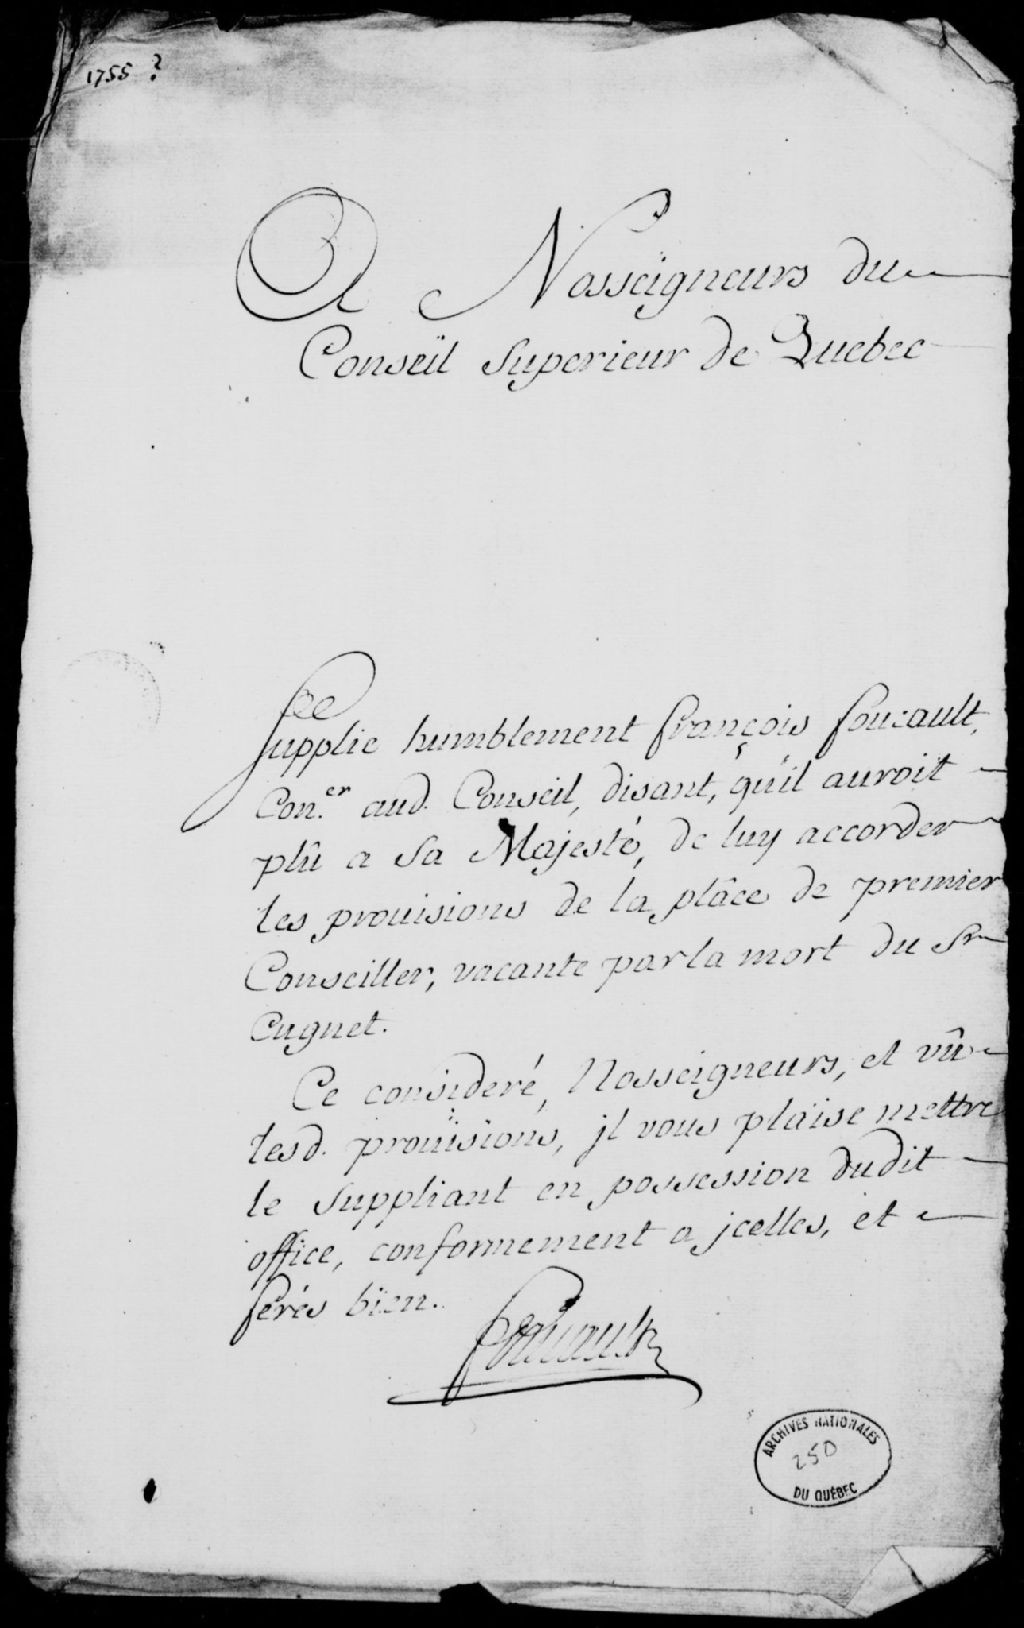 1755 ?
A Nosseigneurs du
Conseil Superieur de Quebec
Supplie humblement françois foucault,
Con.er aud. Conseil, disant, qu'il auroit
plû a Sa Majesté, de luy accorder
les prouisions de la plâce de premier
Conseiller, vacante par la mort du Sr
Cugnet.
Ce consideré, Nosseigneurs, et vû
lesd. prouïsions, jl vous plaise mettre
le Suppliant en possession dudit
office, conformement a jcelles, et
ferés bien.
foucault
ARCHIVES NATIONALES
250
DU QUÉBEC